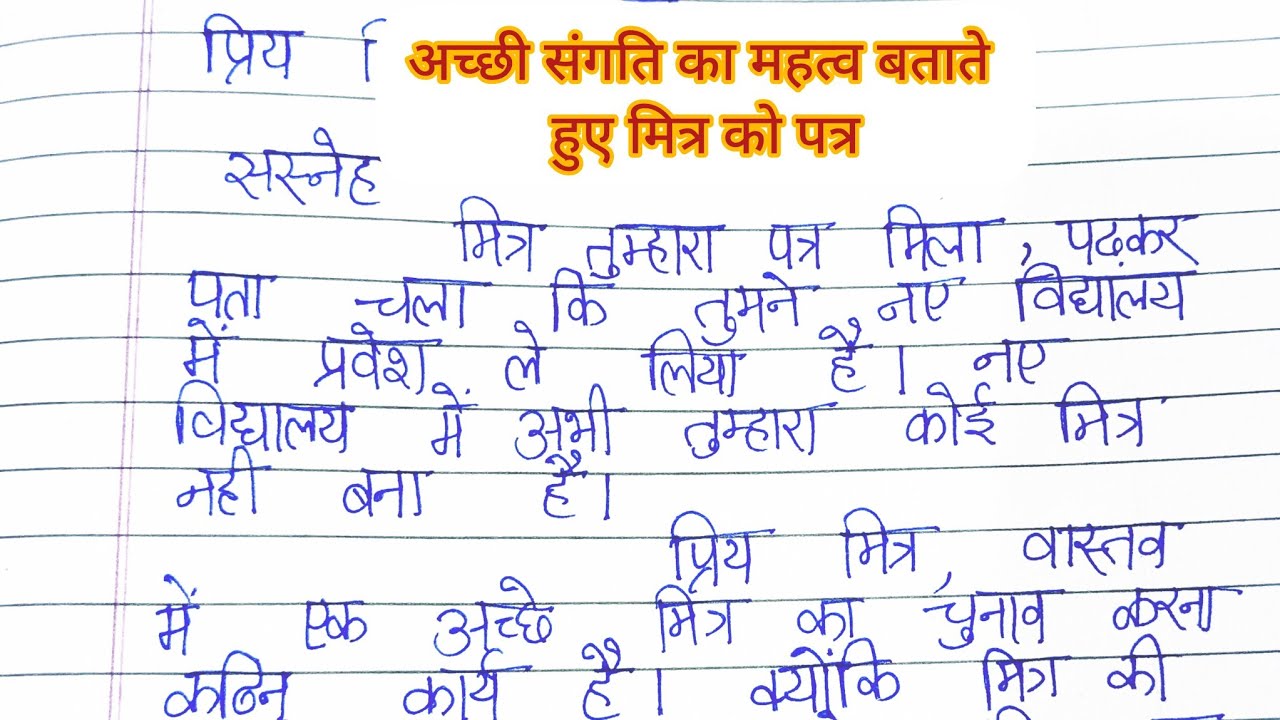 प्रिय
अच्छी संगति का महत्व बताते
हुए मित्र को पत्र
सस्नेह
मित्र तुम्हारा पत्र मिला, पढ़कर
पता चला कि तुमने नए विद्यालय
में प्रवेश ले लिया है। नए
विद्यालय में अभी तुम्हारा कोई मित्र
नही बना है।
प्रिय मित्र, वास्तव
में एक अच्छे मित्र का चुनाव करना
कठिन कार्य है। क्योंकि मित्र की